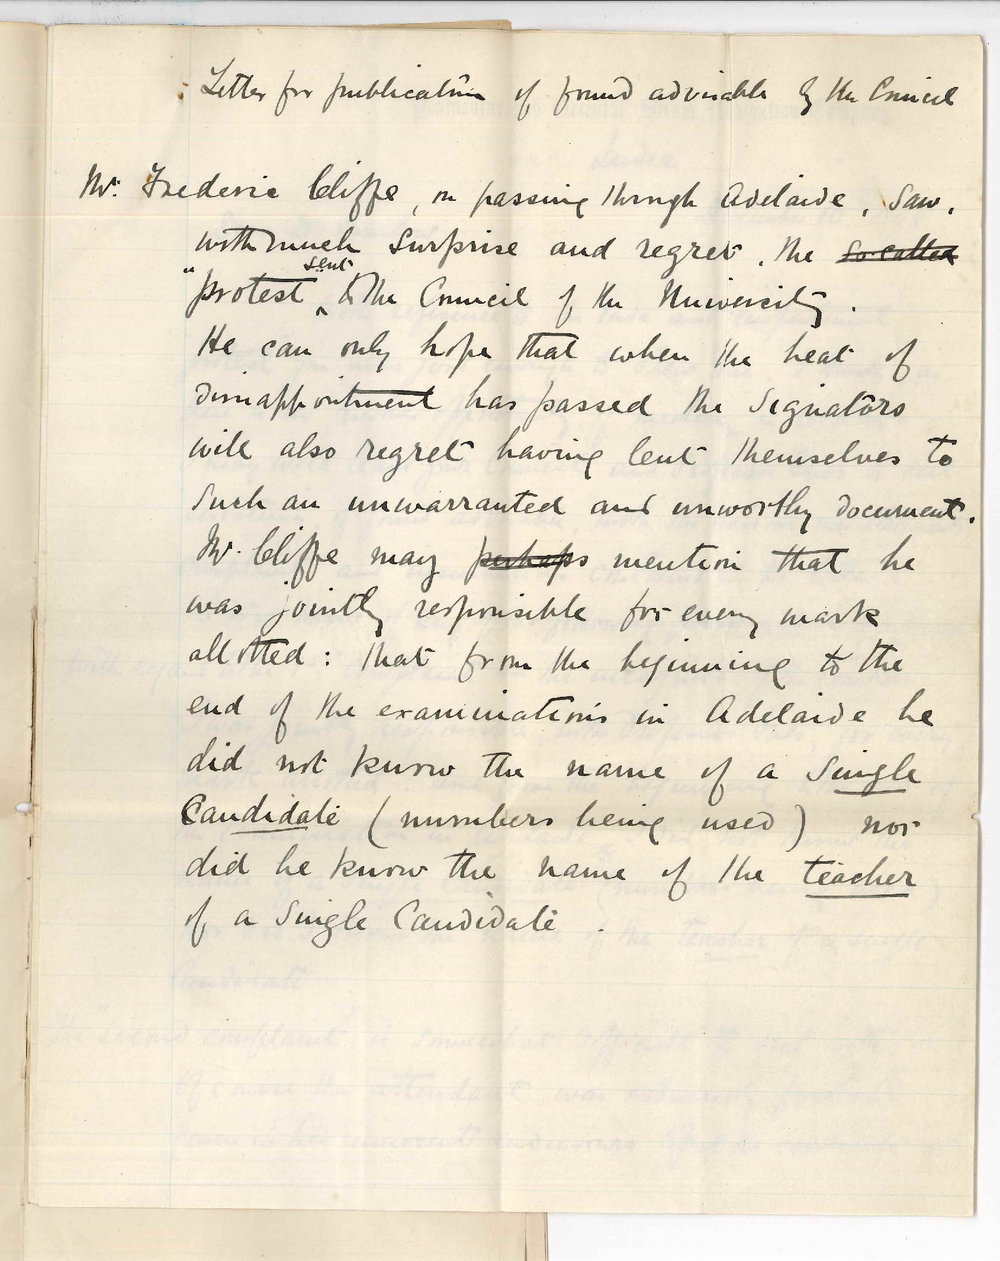 Letter for publication if found advisable by the Council
Mr. Frederic Cliffe, on passing through Adelaide, saw,
with much surprise and regret, the so-called
"protest sent to the Council of the Univercity.
He can only hope that when the heat of
disappointment has passed the signators
will also regret having lent themselves to
such an unwarranted and unworthy document.
Mr. Cliffe may perhaps mention that he
was jointly responsible for every mark
allotted: that from the beginning to the
end of the examinations in Adelaide he
did not know the name of a single
candidate (numbers being used) nor
did he know the name of the teacher
of a single candidate.